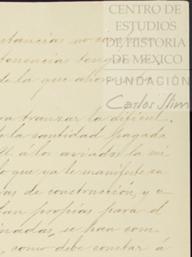 CENTRO DE
ESTUDIOS
DE HISTORIA
DE MEXICO
FUNDACIÓN
Carlos Slim
stancias no
tenencias teng
de la que ahora
ra tranzar la dificul
de la cantidad pagada
á los aviados la mi
lo que va le manifeste ca
as de construcción, y a
tan propias para d
inadas, se han com
como debe constar á